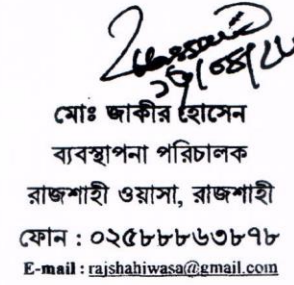 মোঃ জাকীর হোসেন
ব্যবস্থাপনা পরিচালক
রাজশাহী ওয়াসা, রাজশাহী
ফোন : ০২৫৮৮৮৬৩৮৭৮
E-mail : rajshahiwasa@gmail.com